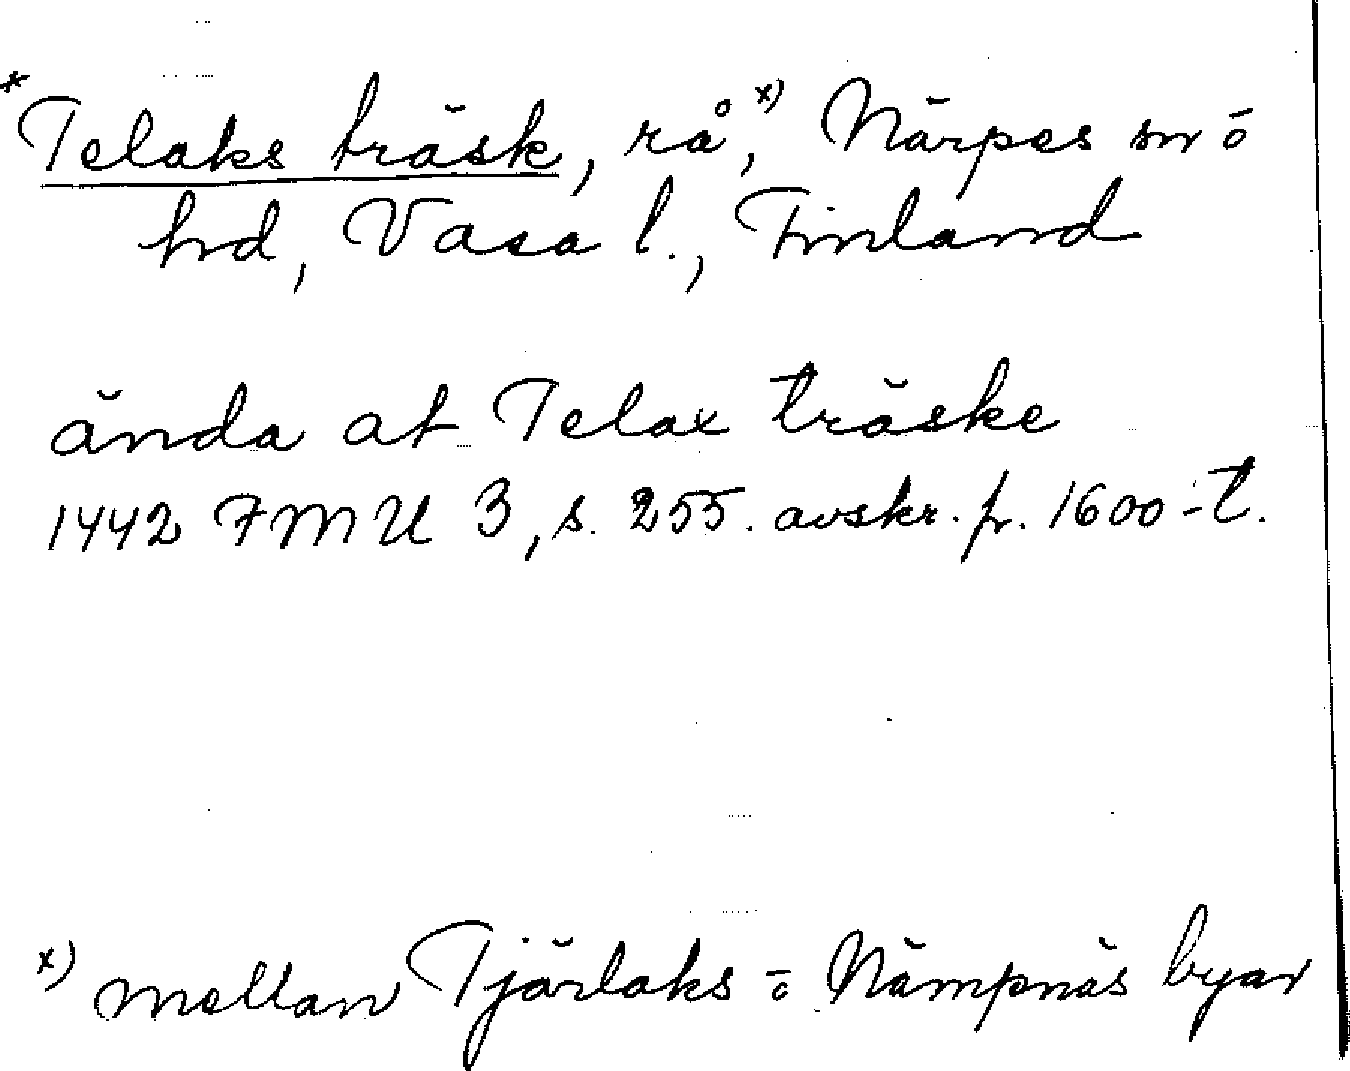 *Telaks träsk, rå,ˣ⁾ Närpes sn o
hd, Vasa l., Finland
ända at Telax träske
1442 FMU 3, s. 255. avskr. fr. 1600-t.
x) mellan Tjärlaks o Nämpnäs byar